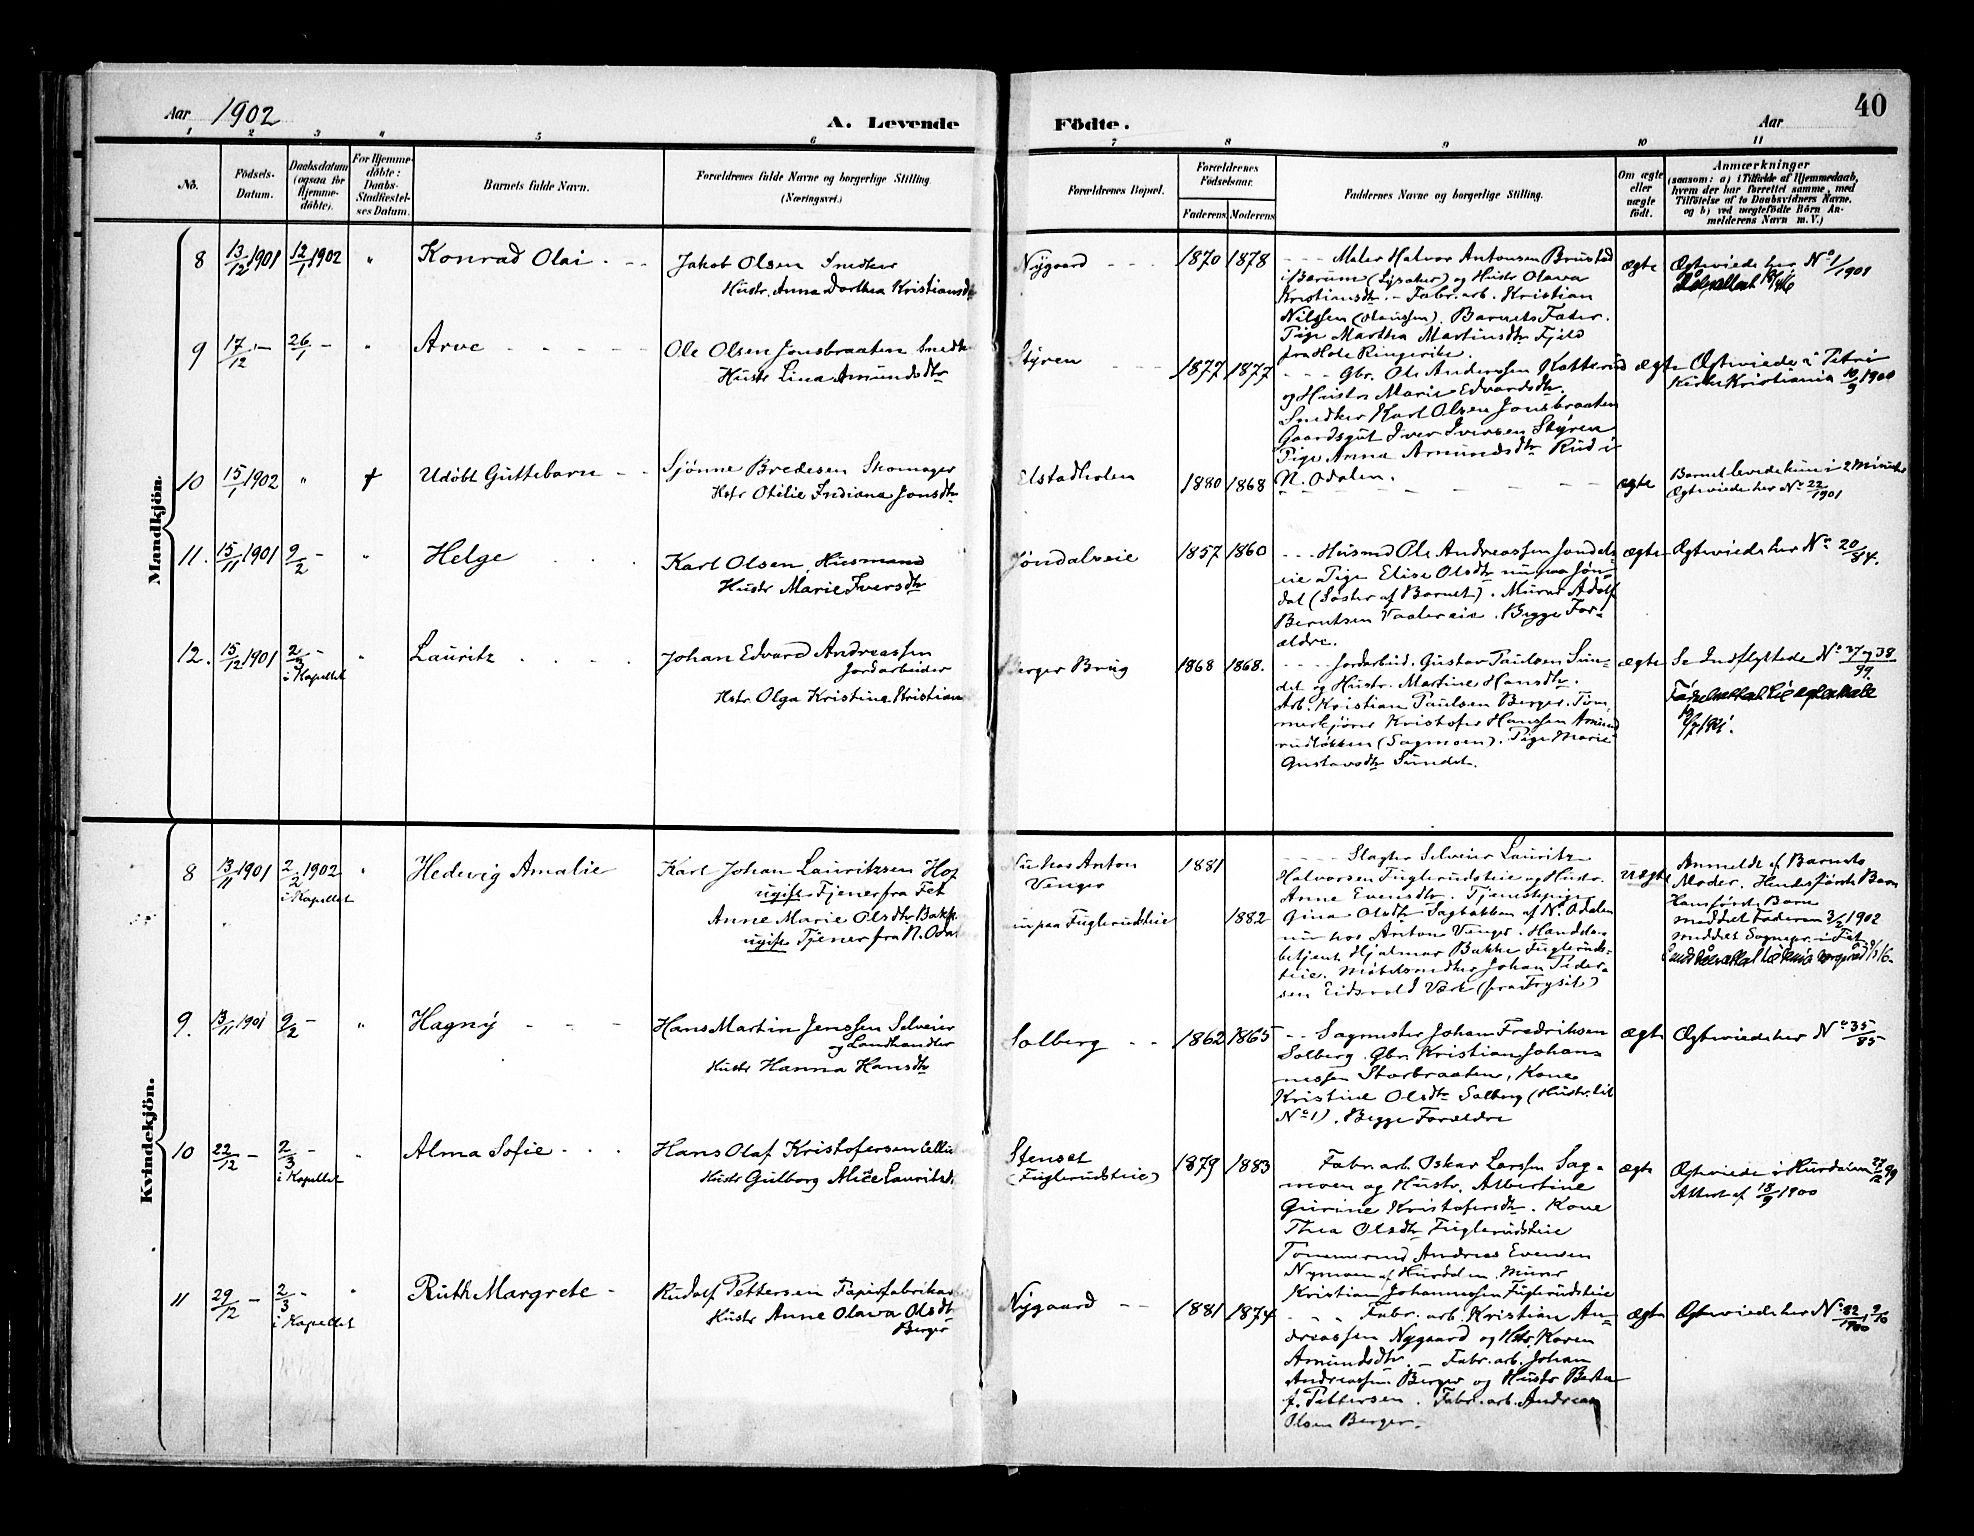 Aar 1902
A. Levende
Födte.
Aar
40
1 2 3 " 5 6 7 8 9 10 11
No.
Födsels-
Datum.
Daabsdatum
(ogsaa for
Hjemme-
döbte).
For Hjemme-
döbte:
Daabs-
Stadfæstel-
ses Datum.
Barnets fulde Navn.
Forældrenes fulde Navne og borgerlige Stilling
(Næringsvei.)
Forældrenes Bopæl.
Forældrenes
Födselsaar.
Faderens Moderens
Faddernes Navne og borgerlige Stilling.
Om ægte
eller
uægte
födt.
Anmærkninger
(saasom: a) i Tilfælde af Hjemmedaab,
hvem der har forrettet samme, med
Tilföielse af to Daabsvidners Navne.
og b) ved uægtefödte Börn An-
melderens Navn m. V.)
Mandkjön.
8 13/12 1901 12/1 1902 " Konrad Olai
Jakob Olsen Snedker
Hustr. Anna Dorthea Kristiansdtr
Nygaard 1870 1878
Maler Halvor Antonsen Brustad
i Bærum (Lysaker) og Hustr Olava
Kristiansdtr. – Fabr. arb. Kristian
Nilssen (Olaussen). Barnets Fader.
Pige Martha Martinsdtr Fjeld
fra Hole Ringerike.
ægte
Ægteviede her No 1/1901
9 17/12 – 26/1 – " Arve
Ole Olsen Jonsbraaten Snedk
Hustr Lina Amundsdtr
Styren 1877 1877
Gbr. Ole Anderssen Katterud
og Hustru Marie Edvardsdtr.
Snedker Karl Olsen Jonsbraaten
Gaardsgut Iver Iversen Styren
Pige Anna Amundsdtr Rud i
N. Odalen.
ægte
Ægteviede i Petri
Kirke Kristiania 10/9 1900
10 15/1 1902 " † Udöbt Guttebarn
Sjönne Bredesen Skomager
Hstr Otilie Indiana Jonsdtr
Elstadholen 1880 1868
ægte
Barnet levede kun i 2 Minuter
Ægteviede her No 22/1901
11. 15/11 1901 9/2 – " Helge
Karl Olsen, Husmand
Hustr Marie Iversdtr
Jöndalseie 1857 1860
Husmd Ole Andreassen Jondals-
eie. Pige Elise Olsdtr nu paa Jön-
dal (Söster af Barnet). Murer Adolf
Berntsen Vaalereie. Begge For-
ældre.
ægte
Ægteviede her No 20/84.
12. 15/12 1901 2/3 – " Lauritz
i Kapellet
Johan Edvard Andreassen
Jordarbeider
Hstr Olga Kristine Kristians
Berger Brug 1868 1868.
Jordarbeid. Gustav Paulsen Sun-
det og Hustr. Martine Hansdtr.
Arb. Kristian Paulsen Berger. Töm-
merkjörer Kristofer Hanssen Amund
rudlökken (Sagmoen). Pige Marie
Gustavsdtr Sundet.
ægte
Se Indflyttede No 37 og 38/99.
Kvindekjön.
8 13/11 1901 2/2 1902 " Hedevig Amalie
i Kapellet
Karl Johan Lauritzsen Hof
ugift Tjener fra Fet
Anne Marie Olsdtr Bakk
ugift Tjener fra N. Odal
Nu hos Anton
Venger
nu paa Fuglerudseie
1881
1882
Slagter Selveier Lauritz
Halvorsen Fuglerudseie og Hustr.
Anne Evensdtr. Tjenestepige
Gina Olsdtr Sagbakken af N. Odalen
nu hos Anton Venger. Handels-
betjent Hjalmar Bakke Fuglerud-
seie. Möbelsnedker Johan Peder-
sen Eidsvold Værk (fra Trysil)
uægte
Anmeldt af Barnets
Moder. Hendes förste Barn
Hans förste Barn
meddelt Faderen 3/2 1902
meddelt Sognepr. i Fet
9. 13/11 1901 9/2 – " Hagny
Hans Martin Jenssen Selveier
og Landhandler
Hustr Hanna Hansdtr
Solberg 1862 1865
Sagmester Johan Fredriksen
Solberg. Gbr. Kristian Johan-
nessen Storbraaten, Kone
Kristine Olsdtr Solberg (Hustr. til
No 1). Begge Forældre
ægte
Ægteviede her No 35/85
10 22/12 – 2/3 – " Alma Sofie
i Kapellet
Hans Olaf Kristofersen
Hustr Gulborg Alice Lauritsd
Stenset
(Fuglerudseie)
1879 1883
Fabr. arb. Oskar Larssen Sag-
moen og Hustr. Albertine
Gurine Kristofersdtr. Kone
Thea Olsdtr Fuglerudseie
Tömmermd Andreas Evensen
Nymoen af Hurdalen. Murer
Kristian Johannessen Fuglerudseie
ægte
Ægteviede i Hurdalen 27/12 99
Attest af 18/9 1900
11 29/12 – 2/3 – " Ruth Margrete
i Kapellet
Rudolf Pettersen Papirfabrikar
Hustr Anne Olava Olsdtr
Berger
Nygaard 1881 1874
Fabr. arb. Kristian An-
dreassen Nygaard og Hstr. Karen
Amundsdtr. – Fabr. arb. Johan
Andreassen Berger og Hustr Berta
f. Pettersen. Fabr. arb. Andreas
Olsen Berger.
ægte
Ægteviede her No 32/1900, 9/10